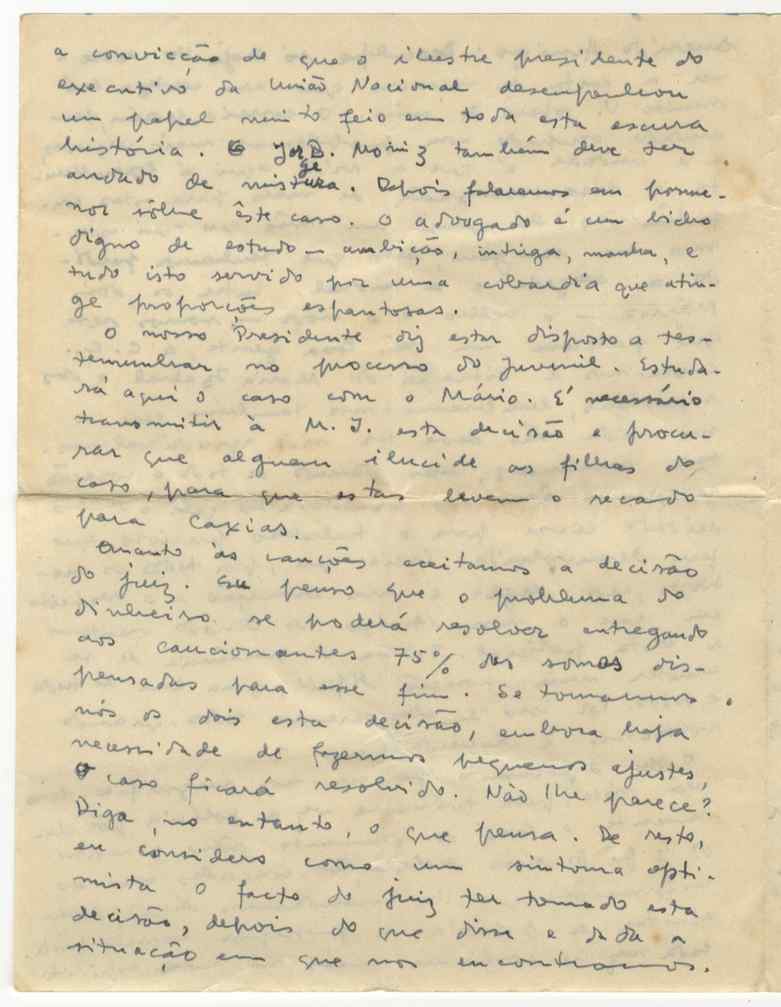 a convicção de que o ilustre presidente do
executivo da União Nacional desempenhou
um papel muito feio em toda esta escura
história. O Jorge B. Moniz também deve ter
andado de mistura. Depois falaremos em porme-
nor sôbre êste caso. O advogado é um bicho
digno de estudo – ambição, intriga, manha, e
tudo isto servido por uma cobardia que atin-
ge proporções espantosas.
O nosso Presidente diz estar disposto a tes-
temunhar no processo do Juvenil. Estuda-
rá aqui o caso com o Mário. É necessário
transmitir à M. J. esta decisão e procu-
rar que alguem ilucide as filhas do
caso, para que estas levem o recado
para Caxias.
Quanto às cauções aceitamos a decisão
do juiz. Eu penso que o problema do
dinheiro se poderá resolver entregando
aos caucionantes 75% das somas dis-
pensadas para esse fim. Se tomarmos
nós os dois esta decisão, embora haja
necessidade de fazermos pequenos ajustes,
o caso ficará resolvido. Não lhe parece?
Diga, no entanto, o que pensa. De resto,
eu considero como um sintoma opti-
mista o facto do juiz ter tomado esta
decisão, depois do que disse e dada a
situação em que nos encontramos.